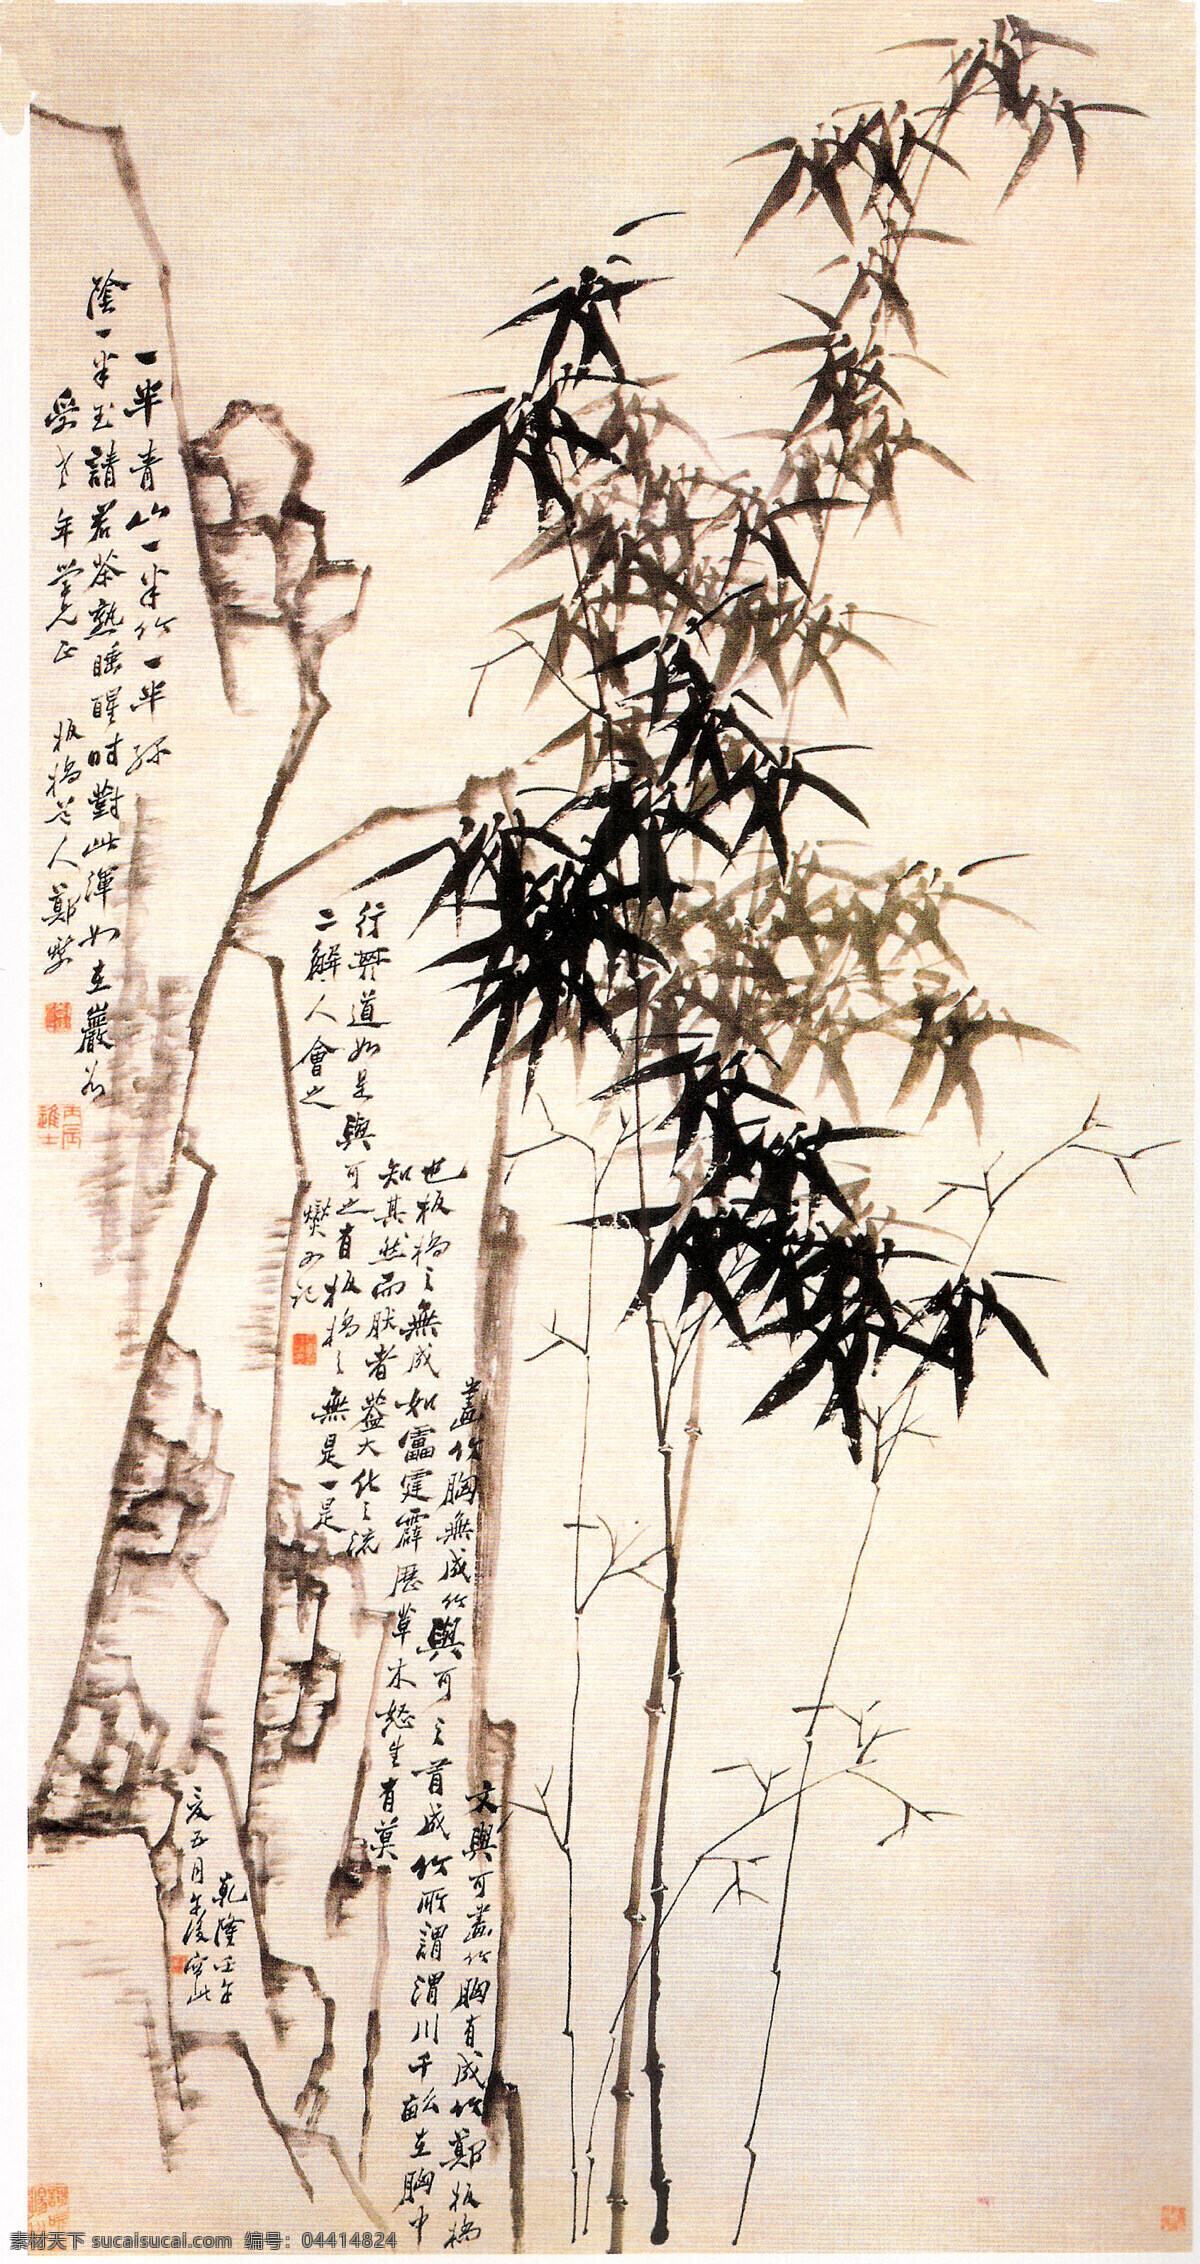 一半青山一半竹一半綠
陰一半玉請君茶熟睡醒時對此渾如在巖谷
受老年學兄正 板橋老人鄭燮
丙辰進士
文與可畫竹胸有成竹鄭板橋
畫竹胸無成竹與可之有成竹所謂渭川千畝在胸中
也板橋之無成如雷霆霹歷草木怒生有莫
知其然而然者蓋大化之流
行其道如是與可之有板橋之無是一是
二解人會之
燮又記
乾隆壬午
夏五月午後寫此
素材天下 sucaisucai.com 编号：04414824